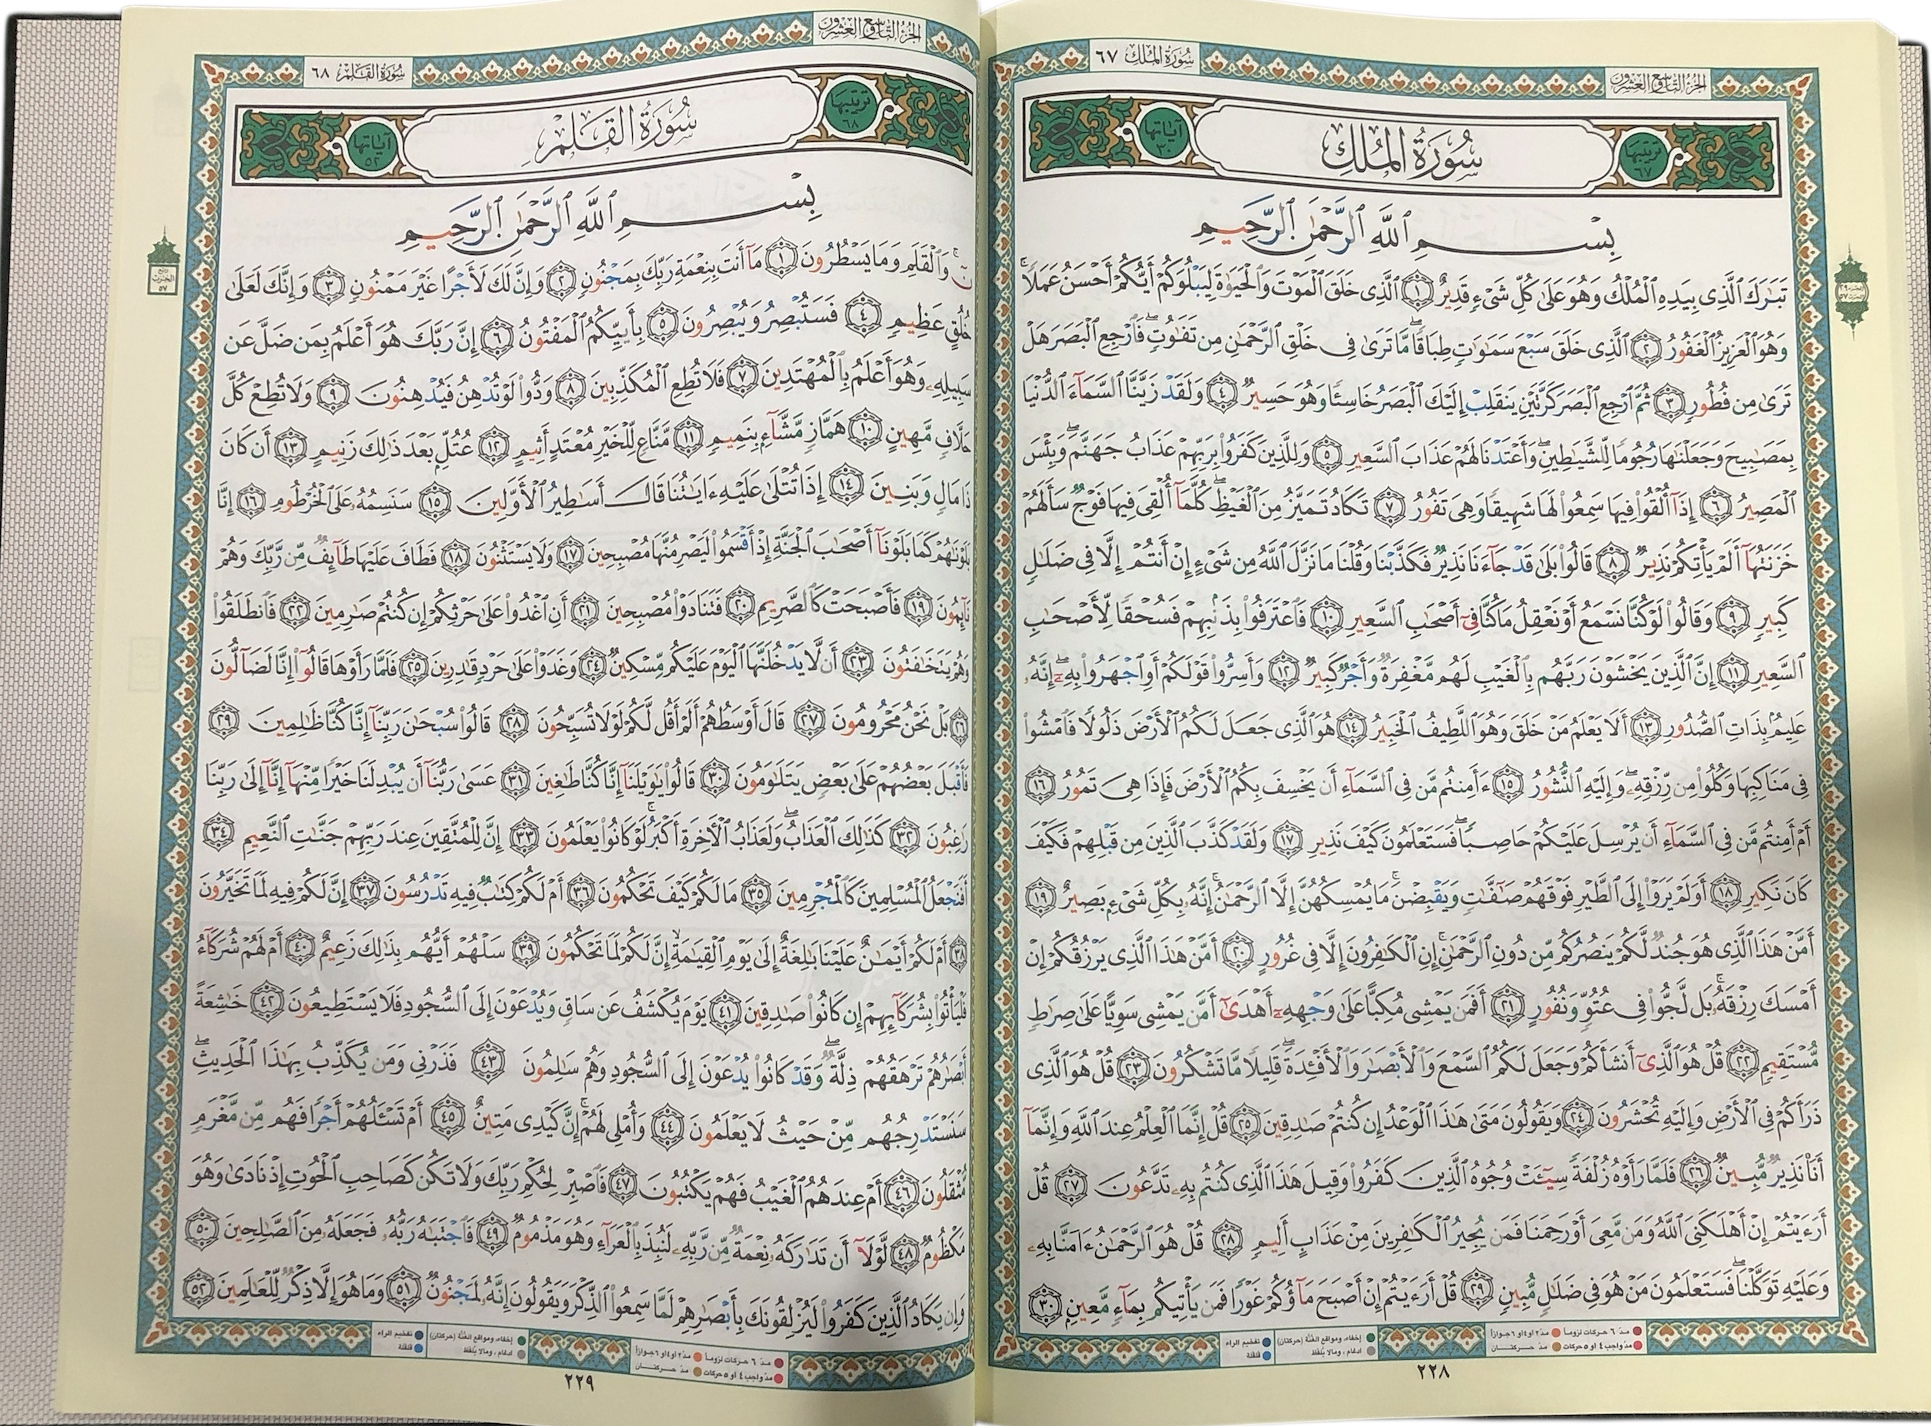 سُورَةُ المُلك ٦٧
الجزء التاسع والعشرون
ترتيبها ٦٧
سُورَةُ المُلك
آياتها ٣٠
بِسۡمِ ٱللَّهِ ٱلرَّحۡمَٰنِ ٱلرَّحِيمِ
تَبَٰرَكَ ٱلَّذِي بِيَدِهِ ٱلۡمُلۡكُ وَهُوَ عَلَىٰ كُلِّ شَيۡءٖ قَدِيرٌ ١ ٱلَّذِي خَلَقَ ٱلۡمَوۡتَ وَٱلۡحَيَوٰةَ لِيَبۡلُوَكُمۡ أَيُّكُمۡ أَحۡسَنُ عَمَلٗاۚ
وَهُوَ ٱلۡعَزِيزُ ٱلۡغَفُورُ ٢ ٱلَّذِي خَلَقَ سَبۡعَ سَمَٰوَٰتٖ طِبَاقٗاۖ مَّا تَرَىٰ فِي خَلۡقِ ٱلرَّحۡمَٰنِ مِن تَفَٰوُتٖۖ فَٱرۡجِعِ ٱلۡبَصَرَ هَلۡ
تَرَىٰ مِن فُطُورٖ ٣ ثُمَّ ٱرۡجِعِ ٱلۡبَصَرَ كَرَّتَيۡنِ يَنقَلِبۡ إِلَيۡكَ ٱلۡبَصَرُ خَاسِئٗا وَهُوَ حَسِيرٞ ٤ وَلَقَدۡ زَيَّنَّا ٱلسَّمَآءَ ٱلدُّنۡيَا
بِمَصَٰبِيحَ وَجَعَلۡنَٰهَا رُجُومٗا لِّلشَّيَٰطِينِۖ وَأَعۡتَدۡنَا لَهُمۡ عَذَابَ ٱلسَّعِيرِ ٥ وَلِلَّذِينَ كَفَرُواْ بِرَبِّهِمۡ عَذَابُ جَهَنَّمَۖ وَبِئۡسَ
ٱلۡمَصِيرُ ٦ إِذَآ أُلۡقُواْ فِيهَا سَمِعُواْ لَهَا شَهِيقٗا وَهِيَ تَفُورُ ٧ تَكَادُ تَمَيَّزُ مِنَ ٱلۡغَيۡظِۖ كُلَّمَآ أُلۡقِيَ فِيهَا فَوۡجٞ سَأَلَهُمۡ
خَزَنَتُهَآ أَلَمۡ يَأۡتِكُمۡ نَذِيرٞ ٨ قَالُواْ بَلَىٰ قَدۡ جَآءَنَا نَذِيرٞ فَكَذَّبۡنَا وَقُلۡنَا مَا نَزَّلَ ٱللَّهُ مِن شَيۡءٍ إِنۡ أَنتُمۡ إِلَّا فِي ضَلَٰلٖ
كَبِيرٖ ٩ وَقَالُواْ لَوۡ كُنَّا نَسۡمَعُ أَوۡ نَعۡقِلُ مَا كُنَّا فِيٓ أَصۡحَٰبِ ٱلسَّعِيرِ ١٠ فَٱعۡتَرَفُواْ بِذَنۢبِهِمۡ فَسُحۡقٗا لِّأَصۡحَٰبِ
ٱلسَّعِيرِ ١١ إِنَّ ٱلَّذِينَ يَخۡشَوۡنَ رَبَّهُم بِٱلۡغَيۡبِ لَهُم مَّغۡفِرَةٞ وَأَجۡرٞ كَبِيرٞ ١٢ وَأَسِرُّواْ قَوۡلَكُمۡ أَوِ ٱجۡهَرُواْ بِهِۦٓۖ إِنَّهُۥ
عَلِيمُۢ بِذَاتِ ٱلصُّدُورِ ١٣ أَلَا يَعۡلَمُ مَنۡ خَلَقَ وَهُوَ ٱللَّطِيفُ ٱلۡخَبِيرُ ١٤ هُوَ ٱلَّذِي جَعَلَ لَكُمُ ٱلۡأَرۡضَ ذَلُولٗا فَٱمۡشُواْ
فِي مَنَاكِبِهَا وَكُلُواْ مِن رِّزۡقِهِۦۖ وَإِلَيۡهِ ٱلنُّشُورُ ١٥ ءَأَمِنتُم مَّن فِي ٱلسَّمَآءِ أَن يَخۡسِفَ بِكُمُ ٱلۡأَرۡضَ فَإِذَا هِيَ تَمُورُ ١٦
أَمۡ أَمِنتُم مَّن فِي ٱلسَّمَآءِ أَن يُرۡسِلَ عَلَيۡكُمۡ حَاصِبٗاۖ فَسَتَعۡلَمُونَ كَيۡفَ نَذِيرِ ١٧ وَلَقَدۡ كَذَّبَ ٱلَّذِينَ مِن قَبۡلِهِمۡ فَكَيۡفَ
كَانَ نَكِيرِ ١٨ أَوَلَمۡ يَرَوۡاْ إِلَى ٱلطَّيۡرِ فَوۡقَهُمۡ صَٰٓفَّٰتٖ وَيَقۡبِضۡنَۚ مَا يُمۡسِكُهُنَّ إِلَّا ٱلرَّحۡمَٰنُۚ إِنَّهُۥ بِكُلِّ شَيۡءِۭ بَصِيرٌ ١٩
أَمَّنۡ هَٰذَا ٱلَّذِي هُوَ جُندٞ لَّكُمۡ يَنصُرُكُم مِّن دُونِ ٱلرَّحۡمَٰنِۚ إِنِ ٱلۡكَٰفِرُونَ إِلَّا فِي غُرُورٍ ٢٠ أَمَّنۡ هَٰذَا ٱلَّذِي يَرۡزُقُكُمۡ إِنۡ
أَمۡسَكَ رِزۡقَهُۥۚ بَل لَّجُّواْ فِي عُتُوّٖ وَنُفُورٍ ٢١ أَفَمَن يَمۡشِي مُكِبًّا عَلَىٰ وَجۡهِهِۦٓ أَهۡدَىٰٓ أَمَّن يَمۡشِي سَوِيًّا عَلَىٰ صِرَٰطٖ
مُّسۡتَقِيمٖ ٢٢ قُلۡ هُوَ ٱلَّذِيٓ أَنشَأَكُمۡ وَجَعَلَ لَكُمُ ٱلسَّمۡعَ وَٱلۡأَبۡصَٰرَ وَٱلۡأَفۡـِٔدَةَۖ قَلِيلٗا مَّا تَشۡكُرُونَ ٢٣ قُلۡ هُوَ ٱلَّذِي
ذَرَأَكُمۡ فِي ٱلۡأَرۡضِ وَإِلَيۡهِ تُحۡشَرُونَ ٢٤ وَيَقُولُونَ مَتَىٰ هَٰذَا ٱلۡوَعۡدُ إِن كُنتُمۡ صَٰدِقِينَ ٢٥ قُلۡ إِنَّمَا ٱلۡعِلۡمُ عِندَ ٱللَّهِ وَإِنَّمَآ
أَنَا۠ نَذِيرٞ مُّبِينٞ ٢٦ فَلَمَّا رَأَوۡهُ زُلۡفَةٗ سِيٓـَٔتۡ وُجُوهُ ٱلَّذِينَ كَفَرُواْ وَقِيلَ هَٰذَا ٱلَّذِي كُنتُم بِهِۦ تَدَّعُونَ ٢٧ قُلۡ
أَرَءَيۡتُمۡ إِنۡ أَهۡلَكَنِيَ ٱللَّهُ وَمَن مَّعِيَ أَوۡ رَحِمَنَا فَمَن يُجِيرُ ٱلۡكَٰفِرِينَ مِنۡ عَذَابٍ أَلِيمٖ ٢٨ قُلۡ هُوَ ٱلرَّحۡمَٰنُ ءَامَنَّا بِهِۦ
وَعَلَيۡهِ تَوَكَّلۡنَاۖ فَسَتَعۡلَمُونَ مَنۡ هُوَ فِي ضَلَٰلٖ مُّبِينٖ ٢٩ قُلۡ أَرَءَيۡتُمۡ إِنۡ أَصۡبَحَ مَآؤُكُمۡ غَوۡرٗا فَمَن يَأۡتِيكُم بِمَآءٖ مَّعِينِۭ ٣٠
مدّ ٦ حركات لزوماً مدّ ٢ أو ٤ أو ٦ جوازاً إخفاء، ومواقع الغنّة (حركتان) تفخيم الراء
مدّ واجب ٤ أو ٥ حركات مدّ حركتان ادغام، ومالا يُلفظ قلقلة
٢٢٨
سُورَةُ القَلَم ٦٨
الجزء التاسع والعشرون
ترتيبها ٦٨
سُورَةُ القَلَم
آياتها ٥٢
بِسۡمِ ٱللَّهِ ٱلرَّحۡمَٰنِ ٱلرَّحِيمِ
نٓۚ وَٱلۡقَلَمِ وَمَا يَسۡطُرُونَ ١ مَآ أَنتَ بِنِعۡمَةِ رَبِّكَ بِمَجۡنُونٖ ٢ وَإِنَّ لَكَ لَأَجۡرًا غَيۡرَ مَمۡنُونٖ ٣ وَإِنَّكَ لَعَلَىٰ
خُلُقٍ عَظِيمٖ ٤ فَسَتُبۡصِرُ وَيُبۡصِرُونَ ٥ بِأَييِّكُمُ ٱلۡمَفۡتُونُ ٦ إِنَّ رَبَّكَ هُوَ أَعۡلَمُ بِمَن ضَلَّ عَن
سَبِيلِهِۦ وَهُوَ أَعۡلَمُ بِٱلۡمُهۡتَدِينَ ٧ فَلَا تُطِعِ ٱلۡمُكَذِّبِينَ ٨ وَدُّواْ لَوۡ تُدۡهِنُ فَيُدۡهِنُونَ ٩ وَلَا تُطِعۡ كُلَّ
حَلَّافٖ مَّهِينٍ ١٠ هَمَّازٖ مَّشَّآءِۭ بِنَمِيمٖ ١١ مَّنَّاعٖ لِّلۡخَيۡرِ مُعۡتَدٍ أَثِيمٍ ١٢ عُتُلِّۭ بَعۡدَ ذَٰلِكَ زَنِيمٍ ١٣ أَن كَانَ
ذَا مَالٖ وَبَنِينَ ١٤ إِذَا تُتۡلَىٰ عَلَيۡهِ ءَايَٰتُنَا قَالَ أَسَٰطِيرُ ٱلۡأَوَّلِينَ ١٥ سَنَسِمُهُۥ عَلَى ٱلۡخُرۡطُومِ ١٦ إِنَّا
بَلَوۡنَٰهُمۡ كَمَا بَلَوۡنَآ أَصۡحَٰبَ ٱلۡجَنَّةِ إِذۡ أَقۡسَمُواْ لَيَصۡرِمُنَّهَا مُصۡبِحِينَ ١٧ وَلَا يَسۡتَثۡنُونَ ١٨ فَطَافَ عَلَيۡهَا طَآئِفٞ مِّن رَّبِّكَ وَهُمۡ
نَآئِمُونَ ١٩ فَأَصۡبَحَتۡ كَٱلصَّرِيمِ ٢٠ فَتَنَادَوۡاْ مُصۡبِحِينَ ٢١ أَنِ ٱغۡدُواْ عَلَىٰ حَرۡثِكُمۡ إِن كُنتُمۡ صَٰرِمِينَ ٢٢ فَٱنطَلَقُواْ
وَهُمۡ يَتَخَٰفَتُونَ ٢٣ أَن لَّا يَدۡخُلَنَّهَا ٱلۡيَوۡمَ عَلَيۡكُم مِّسۡكِينٞ ٢٤ وَغَدَوۡاْ عَلَىٰ حَرۡدٖ قَٰدِرِينَ ٢٥ فَلَمَّا رَأَوۡهَا قَالُوٓاْ إِنَّا لَضَآلُّونَ
٢٦ بَلۡ نَحۡنُ مَحۡرُومُونَ ٢٧ قَالَ أَوۡسَطُهُمۡ أَلَمۡ أَقُل لَّكُمۡ لَوۡلَا تُسَبِّحُونَ ٢٨ قَالُواْ سُبۡحَٰنَ رَبِّنَآ إِنَّا كُنَّا ظَٰلِمِينَ ٢٩
فَأَقۡبَلَ بَعۡضُهُمۡ عَلَىٰ بَعۡضٖ يَتَلَٰوَمُونَ ٣٠ قَالُواْ يَٰوَيۡلَنَآ إِنَّا كُنَّا طَٰغِينَ ٣١ عَسَىٰ رَبُّنَآ أَن يُبۡدِلَنَا خَيۡرٗا مِّنۡهَآ إِنَّآ إِلَىٰ رَبِّنَا
رَٰغِبُونَ ٣٢ كَذَٰلِكَ ٱلۡعَذَابُۖ وَلَعَذَابُ ٱلۡأٓخِرَةِ أَكۡبَرُۚ لَوۡ كَانُواْ يَعۡلَمُونَ ٣٣ إِنَّ لِلۡمُتَّقِينَ عِندَ رَبِّهِمۡ جَنَّٰتِ ٱلنَّعِيمِ ٣٤
أَفَنَجۡعَلُ ٱلۡمُسۡلِمِينَ كَٱلۡمُجۡرِمِينَ ٣٥ مَا لَكُمۡ كَيۡفَ تَحۡكُمُونَ ٣٦ أَمۡ لَكُمۡ كِتَٰبٞ فِيهِ تَدۡرُسُونَ ٣٧ إِنَّ لَكُمۡ فِيهِ لَمَا تَخَيَّرُونَ
٣٨ أَمۡ لَكُمۡ أَيۡمَٰنٌ عَلَيۡنَا بَٰلِغَةٌ إِلَىٰ يَوۡمِ ٱلۡقِيَٰمَةِۙ إِنَّ لَكُمۡ لَمَا تَحۡكُمُونَ ٣٩ سَلۡهُمۡ أَيُّهُم بِذَٰلِكَ زَعِيمٌ ٤٠ أَمۡ لَهُمۡ شُرَكَآءُ
فَلۡيَأۡتُواْ بِشُرَكَآئِهِمۡ إِن كَانُواْ صَٰدِقِينَ ٤١ يَوۡمَ يُكۡشَفُ عَن سَاقٖ وَيُدۡعَوۡنَ إِلَى ٱلسُّجُودِ فَلَا يَسۡتَطِيعُونَ ٤٢ خَٰشِعَةً
أَبۡصَٰرُهُمۡ تَرۡهَقُهُمۡ ذِلَّةٞۖ وَقَدۡ كَانُواْ يُدۡعَوۡنَ إِلَى ٱلسُّجُودِ وَهُمۡ سَٰلِمُونَ ٤٣ فَذَرۡنِي وَمَن يُكَذِّبُ بِهَٰذَا ٱلۡحَدِيثِۖ
سَنَسۡتَدۡرِجُهُم مِّنۡ حَيۡثُ لَا يَعۡلَمُونَ ٤٤ وَأُمۡلِي لَهُمۡۚ إِنَّ كَيۡدِي مَتِينٌ ٤٥ أَمۡ تَسۡـَٔلُهُمۡ أَجۡرٗا فَهُم مِّن مَّغۡرَمٖ
مُّثۡقَلُونَ ٤٦ أَمۡ عِندَهُمُ ٱلۡغَيۡبُ فَهُمۡ يَكۡتُبُونَ ٤٧ فَٱصۡبِرۡ لِحُكۡمِ رَبِّكَ وَلَا تَكُن كَصَاحِبِ ٱلۡحُوتِ إِذۡ نَادَىٰ وَهُوَ
مَكۡظُومٞ ٤٨ لَّوۡلَآ أَن تَدَٰرَكَهُۥ نِعۡمَةٞ مِّن رَّبِّهِۦ لَنُبِذَ بِٱلۡعَرَآءِ وَهُوَ مَذۡمُومٞ ٤٩ فَٱجۡتَبَٰهُ رَبُّهُۥ فَجَعَلَهُۥ مِنَ ٱلصَّٰلِحِينَ ٥٠
وَإِن يَكَادُ ٱلَّذِينَ كَفَرُواْ لَيُزۡلِقُونَكَ بِأَبۡصَٰرِهِمۡ لَمَّا سَمِعُواْ ٱلذِّكۡرَ وَيَقُولُونَ إِنَّهُۥ لَمَجۡنُونٞ ٥١ وَمَا هُوَ إِلَّا ذِكۡرٞ لِّلۡعَٰلَمِينَ ٥٢
مدّ ٦ حركات لزوماً مدّ ٢ أو ٤ أو ٦ جوازاً إخفاء، ومواقع الغنّة (حركتان) تفخيم الراء
مدّ واجب ٤ أو ٥ حركات مدّ حركتان ادغام، ومالا يُلفظ قلقلة
٢٢٩